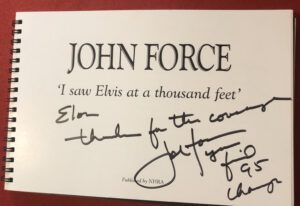 JOHN FORCE
'I saw Elvis at a thousand feet'
Elon
thanks for the
John Force
95
champ
Published by NHRA